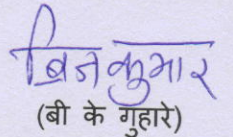 ब्रिजकुमार
(बी के गुहारे)